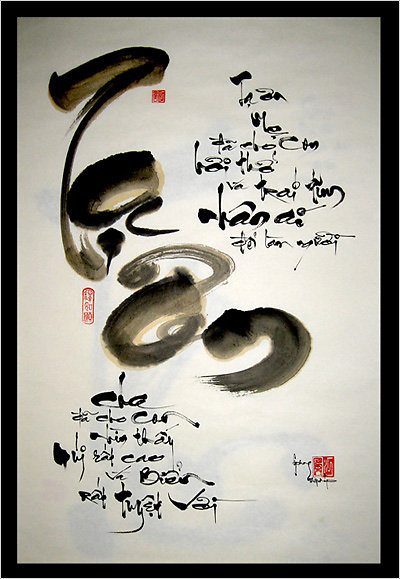 Tạ ơn
Tạ ơn
Mẹ
đã cho Con
hơi thở
và trái tim
nhân ái
để làm người
Cha
đã cho Con
nhìn thấy
Núi rất cao
và Biển
rất tuyệt vời